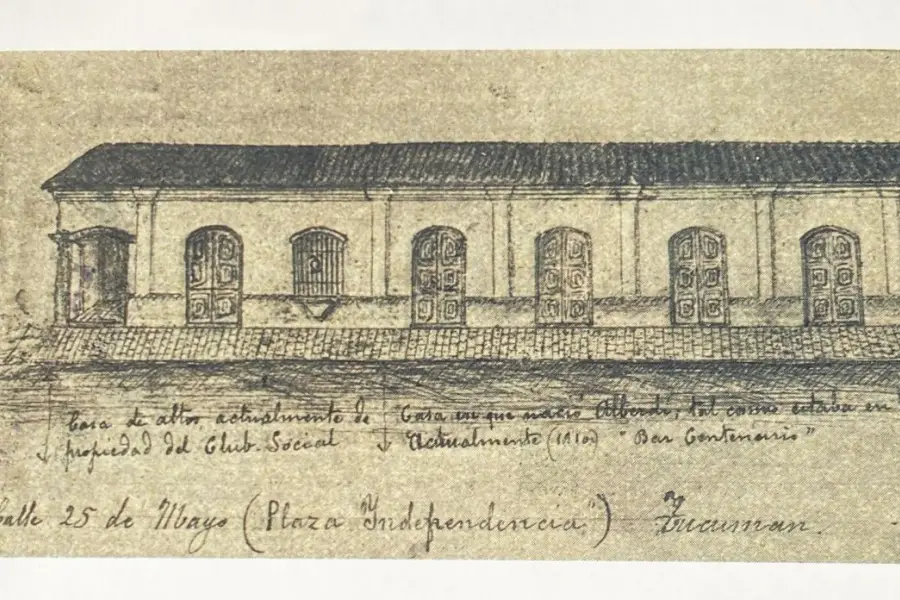 Casa de altos actualmente de
propiedad del Club Social
Casa en que nació Alberdi, tal como estaba en
Actualmente (1910) "Bar Centenario"
Calle 25 de Mayo (Plaza Independencia") Tucuman.